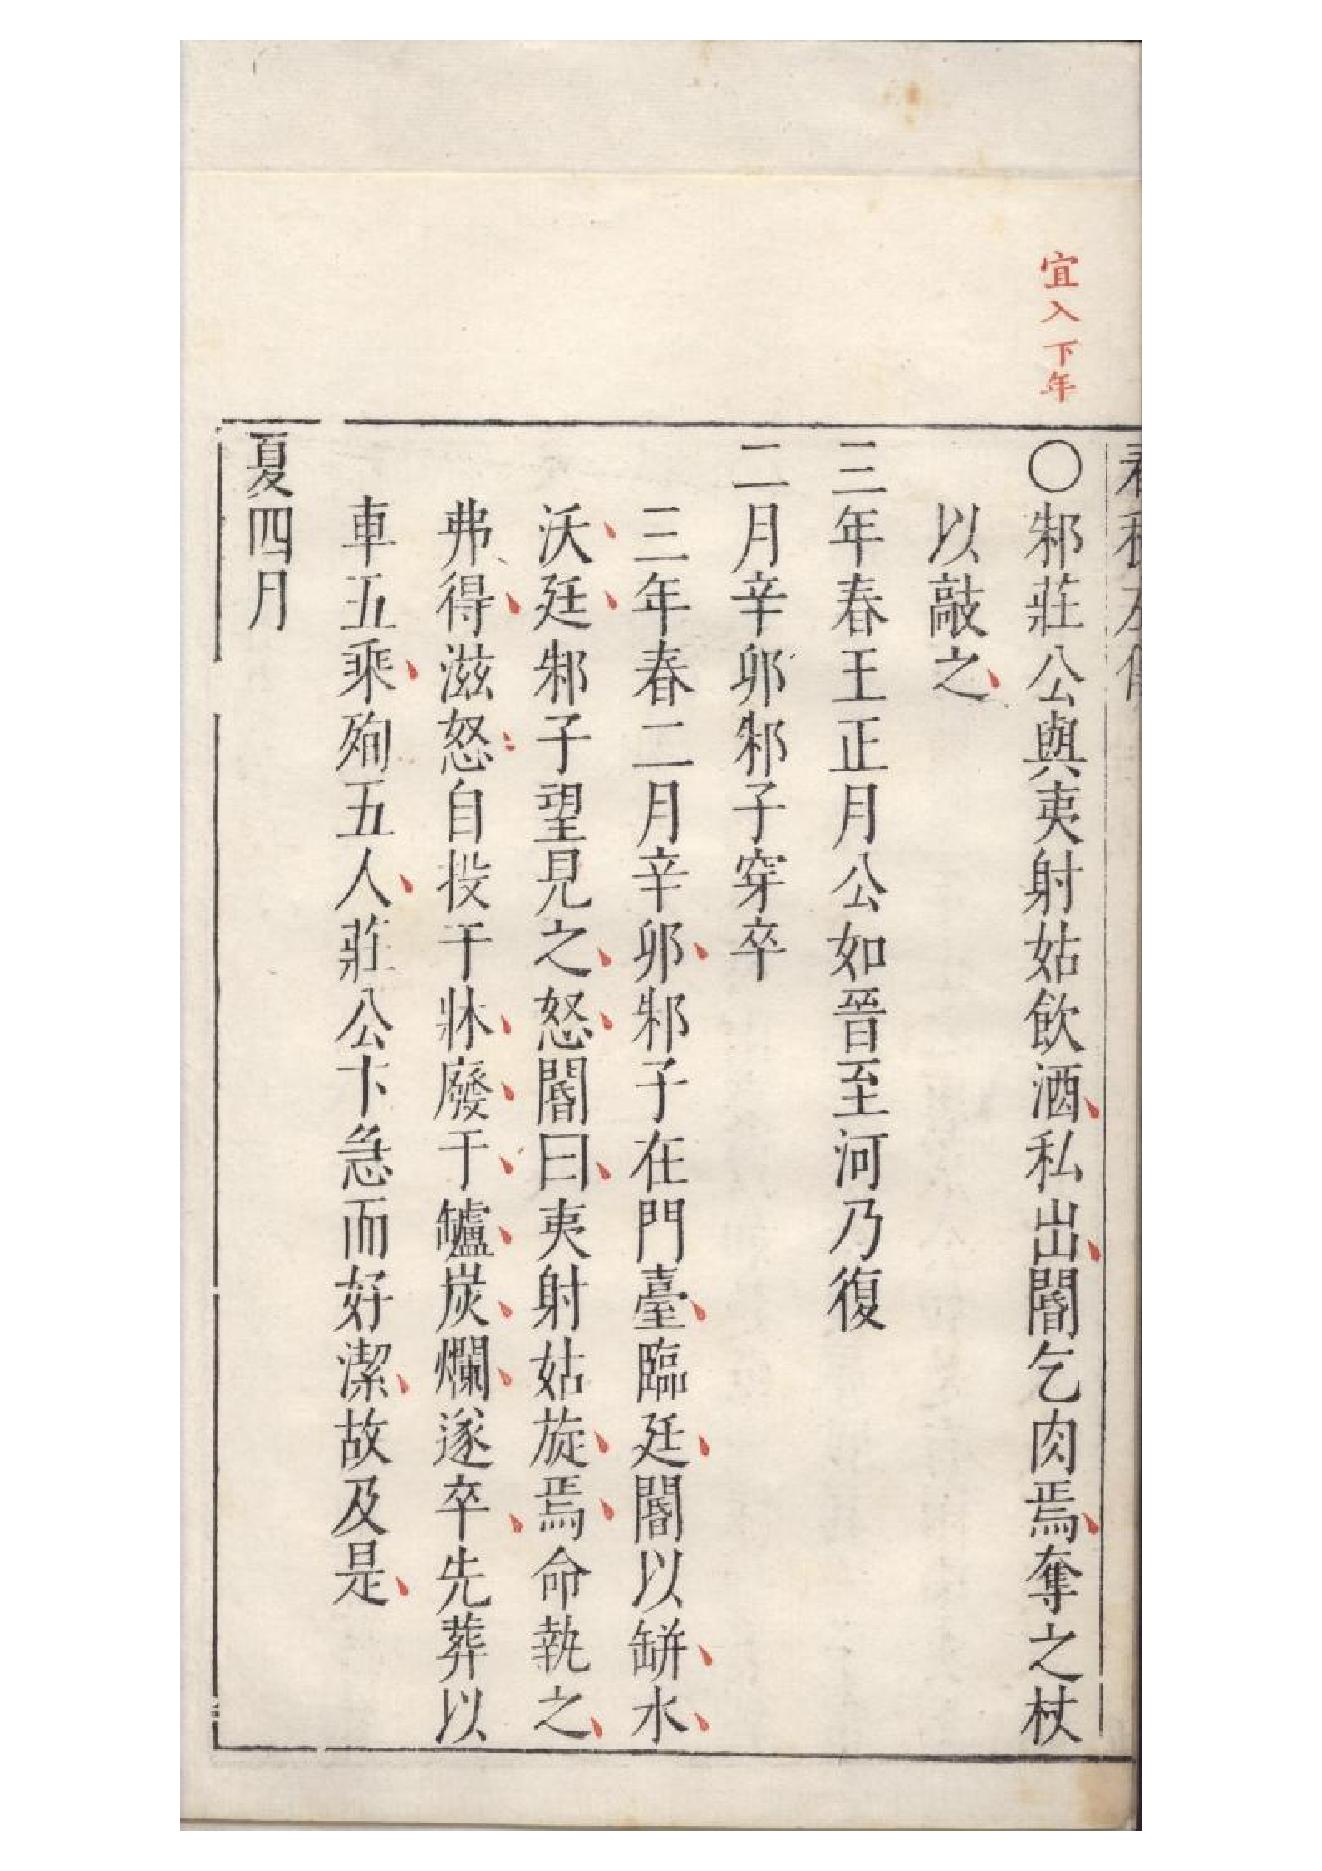 宜入下年
春秋左傳
〇邾莊公與夷射姑飲酒私出閽乞肉焉奪之杖
以敲之
三年春王正月公如晉至河乃復
二月辛卯邾子穿卒
三年春二月辛卯邾子在門臺臨廷閽以缾水
沃廷邾子望見之怒閽曰夷射姑旋焉命執之
弗得滋怒自投于牀廢于罏炭爛遂卒先葬以
車五乘殉五人莊公卞急而好潔故及是
夏四月